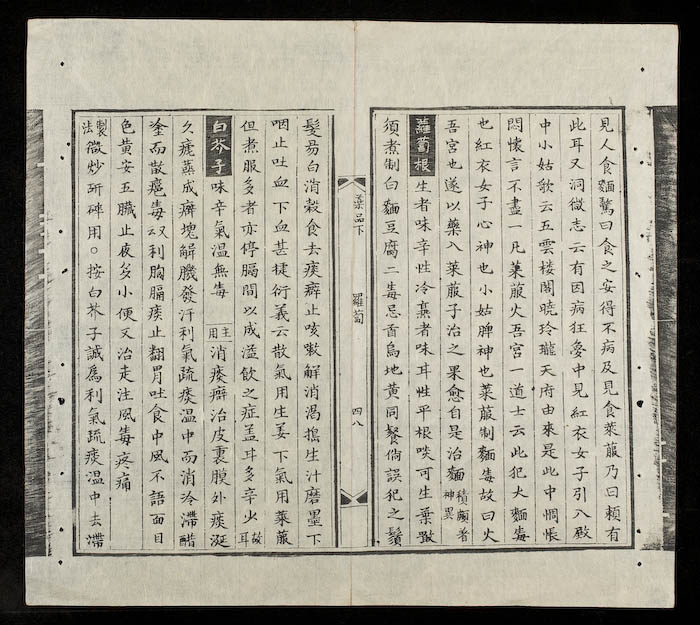 見人食麵驚曰食之安得不病及見食萊菔乃曰頼有
此耳又洞微志云有因病狂夢中見紅衣女子引入殿
中小姑歌云五雲楼閣曉玲瓏天府由來是此中惆悵
悶懷言不盡一凡萊菔火吾宮一道士云此犯大麵毒
也紅衣女子心神也小姑脾神也萊菔制麵毒故曰火
吾宮也遂以藥入萊菔子治之果愈自是治麵積頗者神異
蘿蔔根生者味辛性冷熟者味甘性平根啖可生葉斷
須煮制白麵豆腐二毒忌首烏地黄同餐倘誤犯之鬚
藥品下 羅蔔 四八
髮易白消穀食去痰癖止咳嗽解消渴搗生汁磨墨下
咽止吐血下血甚捷衍義云散氣用生姜下氣用萊菔
但煮服多者亦停膈間以成溢飲之症盖甘多辛少故耳
白芥子味辛氣温無毒主用消痰癖治皮裏膜外痰涎
久瘧蒸成癖塊解肌發汗利氣疏痰温中而消冷滯醋
塗而散瘡毒又利胸膈痰止翻胃吐食中風不語面目
色黄安五臟止夜多小便又治走注風毒疼痛
製法微炒研碎用○按白芥子誠爲利氣疏痰温中去滯